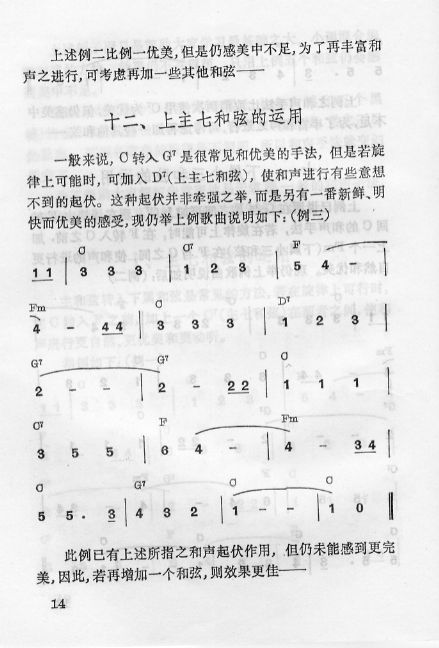 上述例二比例一优美,但是仍感美中不足,为了再丰富和
声之进行,可考虑再加一些其他和弦——
十二、上主七和弦的运用
一般来说, C 转入 G⁷ 是很常见和优美的手法, 但是若旋
律上可能时, 可加入 D⁷(上主七和弦), 使和声进行有些意想
不到的起伏。这种起伏并非牵强之举,而是另有一番新鲜、明
快而优美的感受,现仍举上例歌曲说明如下:(例三)
C C⁷ F
1 1 | 3 3 3 | 1 2 3 | 5 4 – |
Fm C D⁷
4 – 4 4 | 3 3 2 3 | 1 2 3 1 |
G⁷ G⁷ C
2 – – | 2 – 2 2 | 1 1 1 |
C⁷ F Fm
3 5 5 | 6 4 – | 4 – 3 4 |
C G⁷ C C
5 5 . 3 | 4 3 2 | 1 – – | 1 0 ‖
此例已有上述所指之和声起伏作用, 但仍未能感到更完
美,因此,若再增加一个和弦,则效果更佳——
14